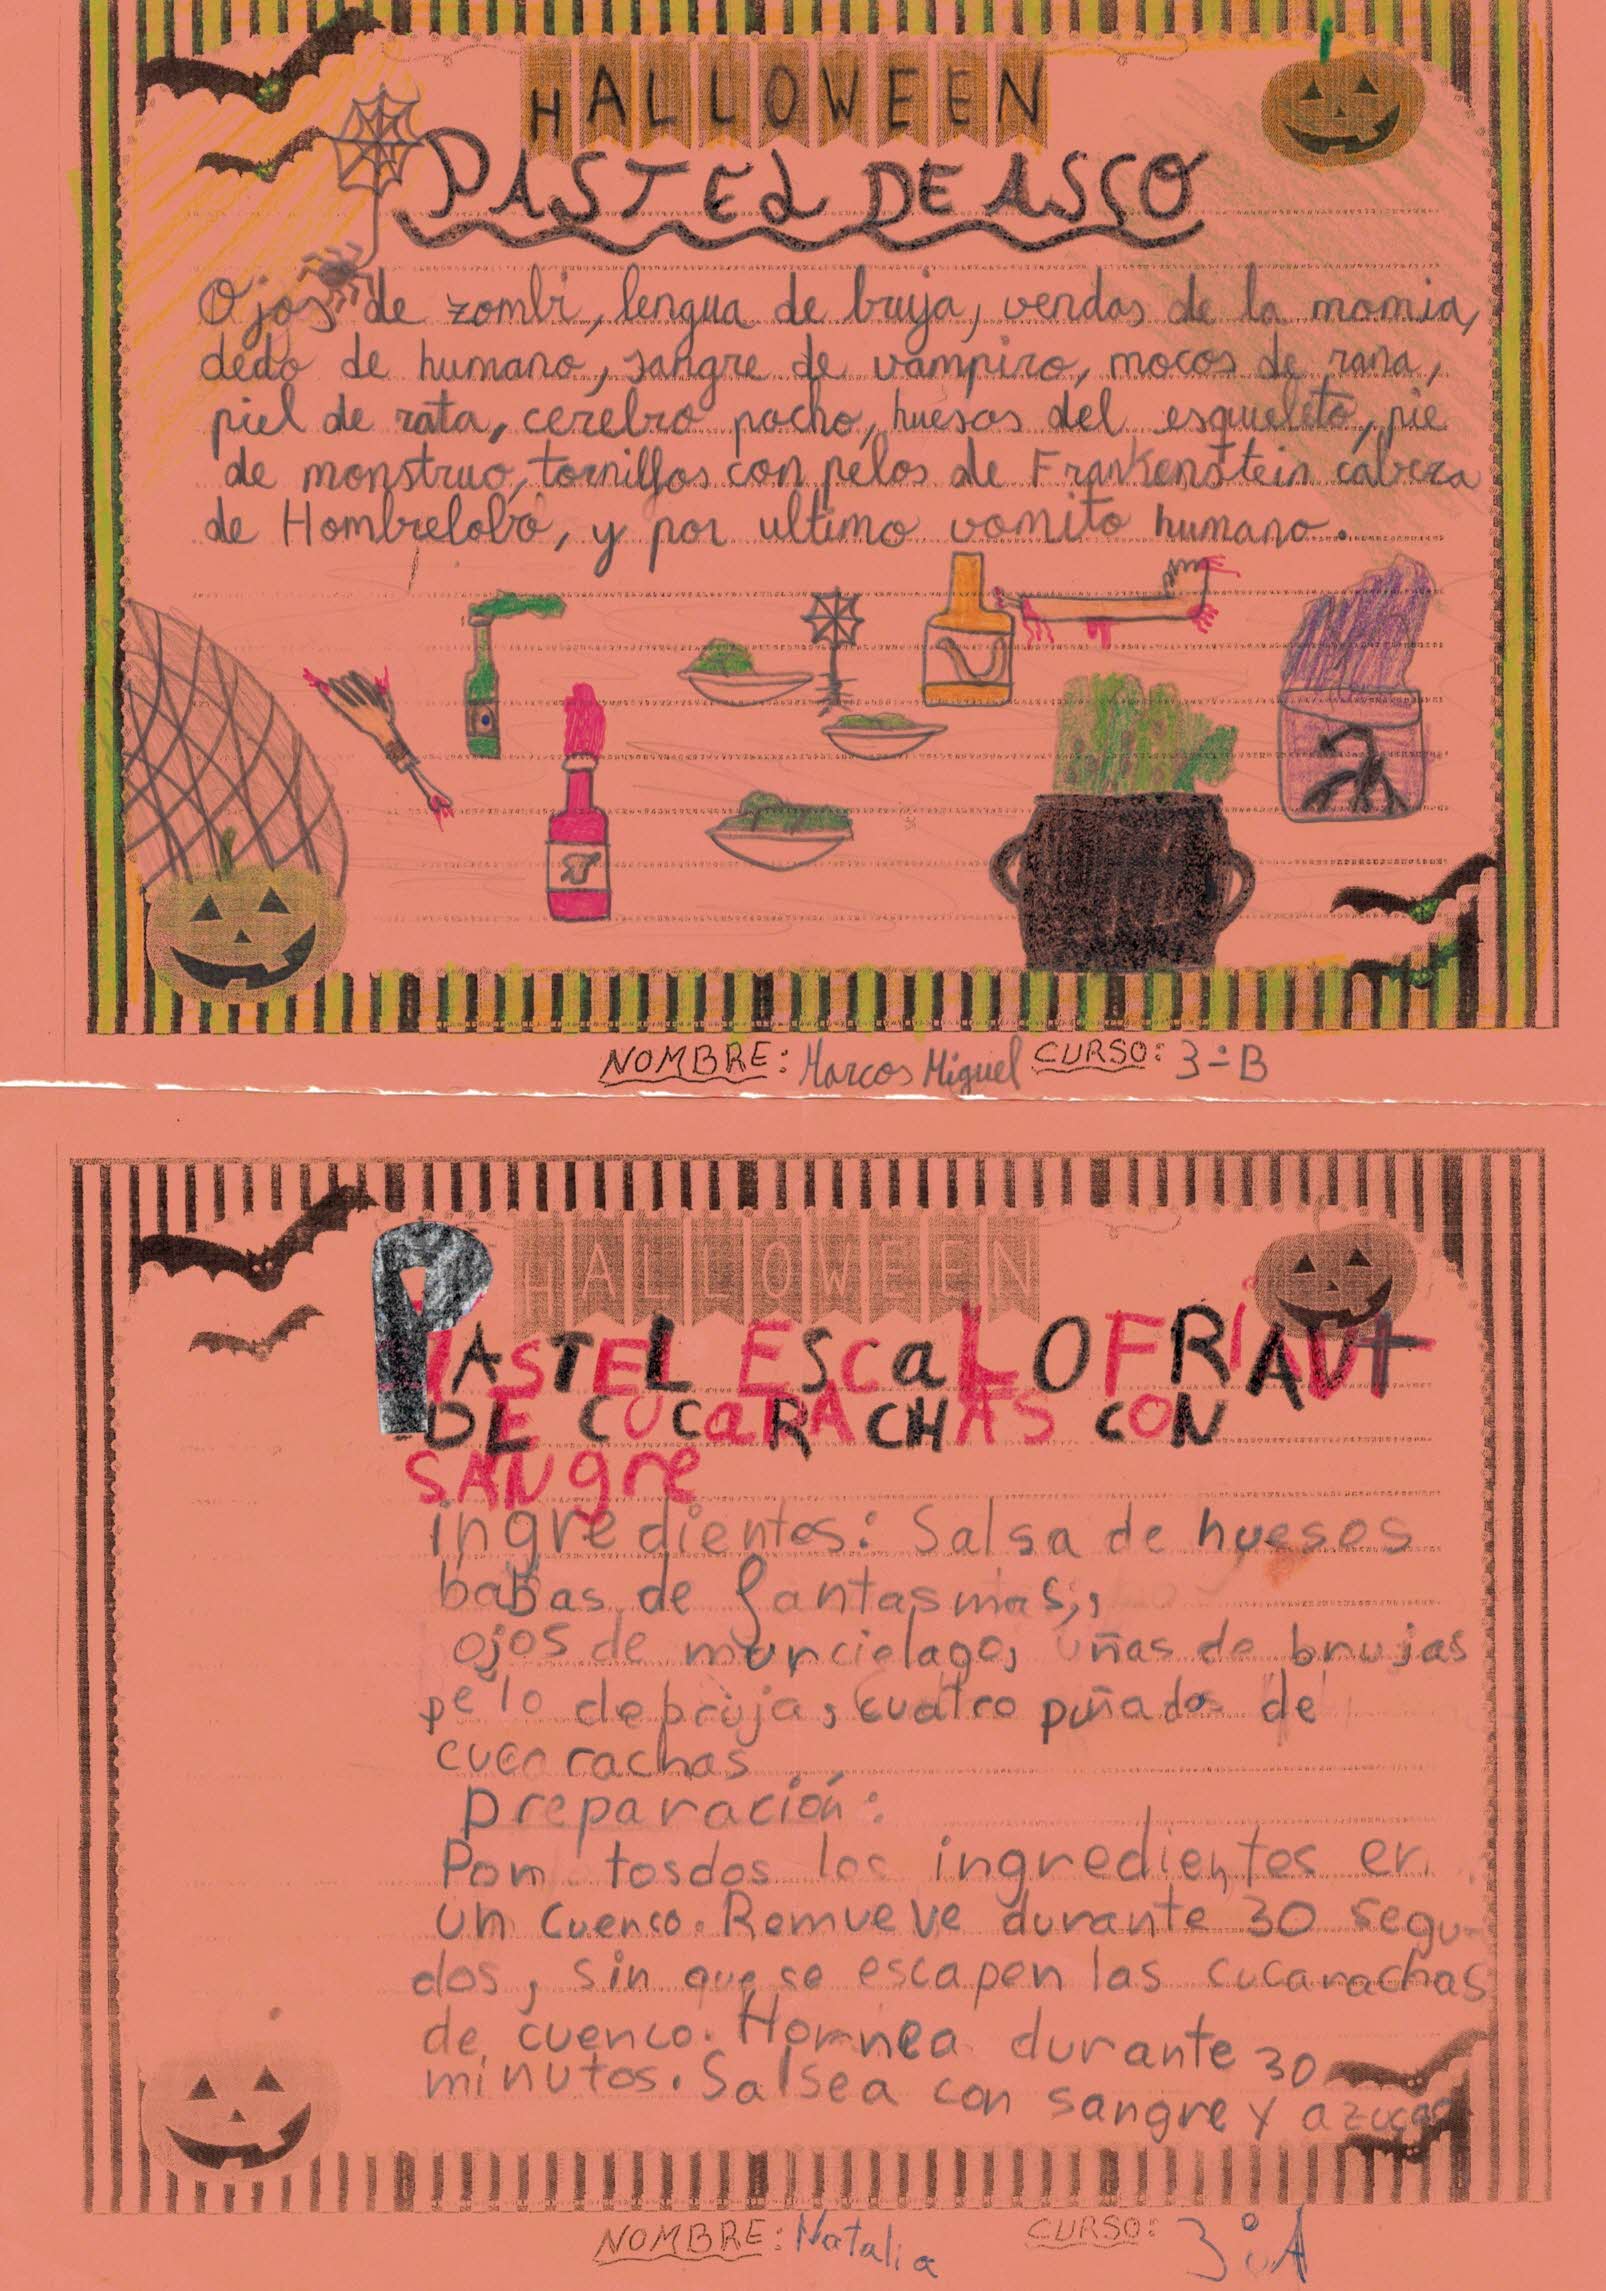 HALLOWEEN
PASTEL DE ASCO
Ojos de zombi, lengua de bruja, vendas de la momia,
dedo de humano, sangre de vampiro, mocos de rana,
piel de rata, cerebro pocho, huesos del esqueleto, pie
de monstruo, tornillos con pelos de Frankenstein cabeza
de Hombrelobo, y por ultimo vomito humano.
NOMBRE: Marcos Miguel CURSO: 3º B
HALLOWEEN
PASTEL ESCaLOFRiANT
DE CUCaRACHAS CON
SANgre
ingredientes: Salsa de huesos
babas de fantasmas,,
ojos de murcielago, uñas de brujas
pelo de bruja, cuatro puñados de
cucarachas
preparación:
Pon tosdos los ingredientes en
un cuenco. Remueve durante 30 segu-
dos, sin que se escapen las cucarachas
de cuenco. Hornea durante 30
minutos. Salsea con sangre y azucar
NOMBRE: Natalia CURSO: 3º A